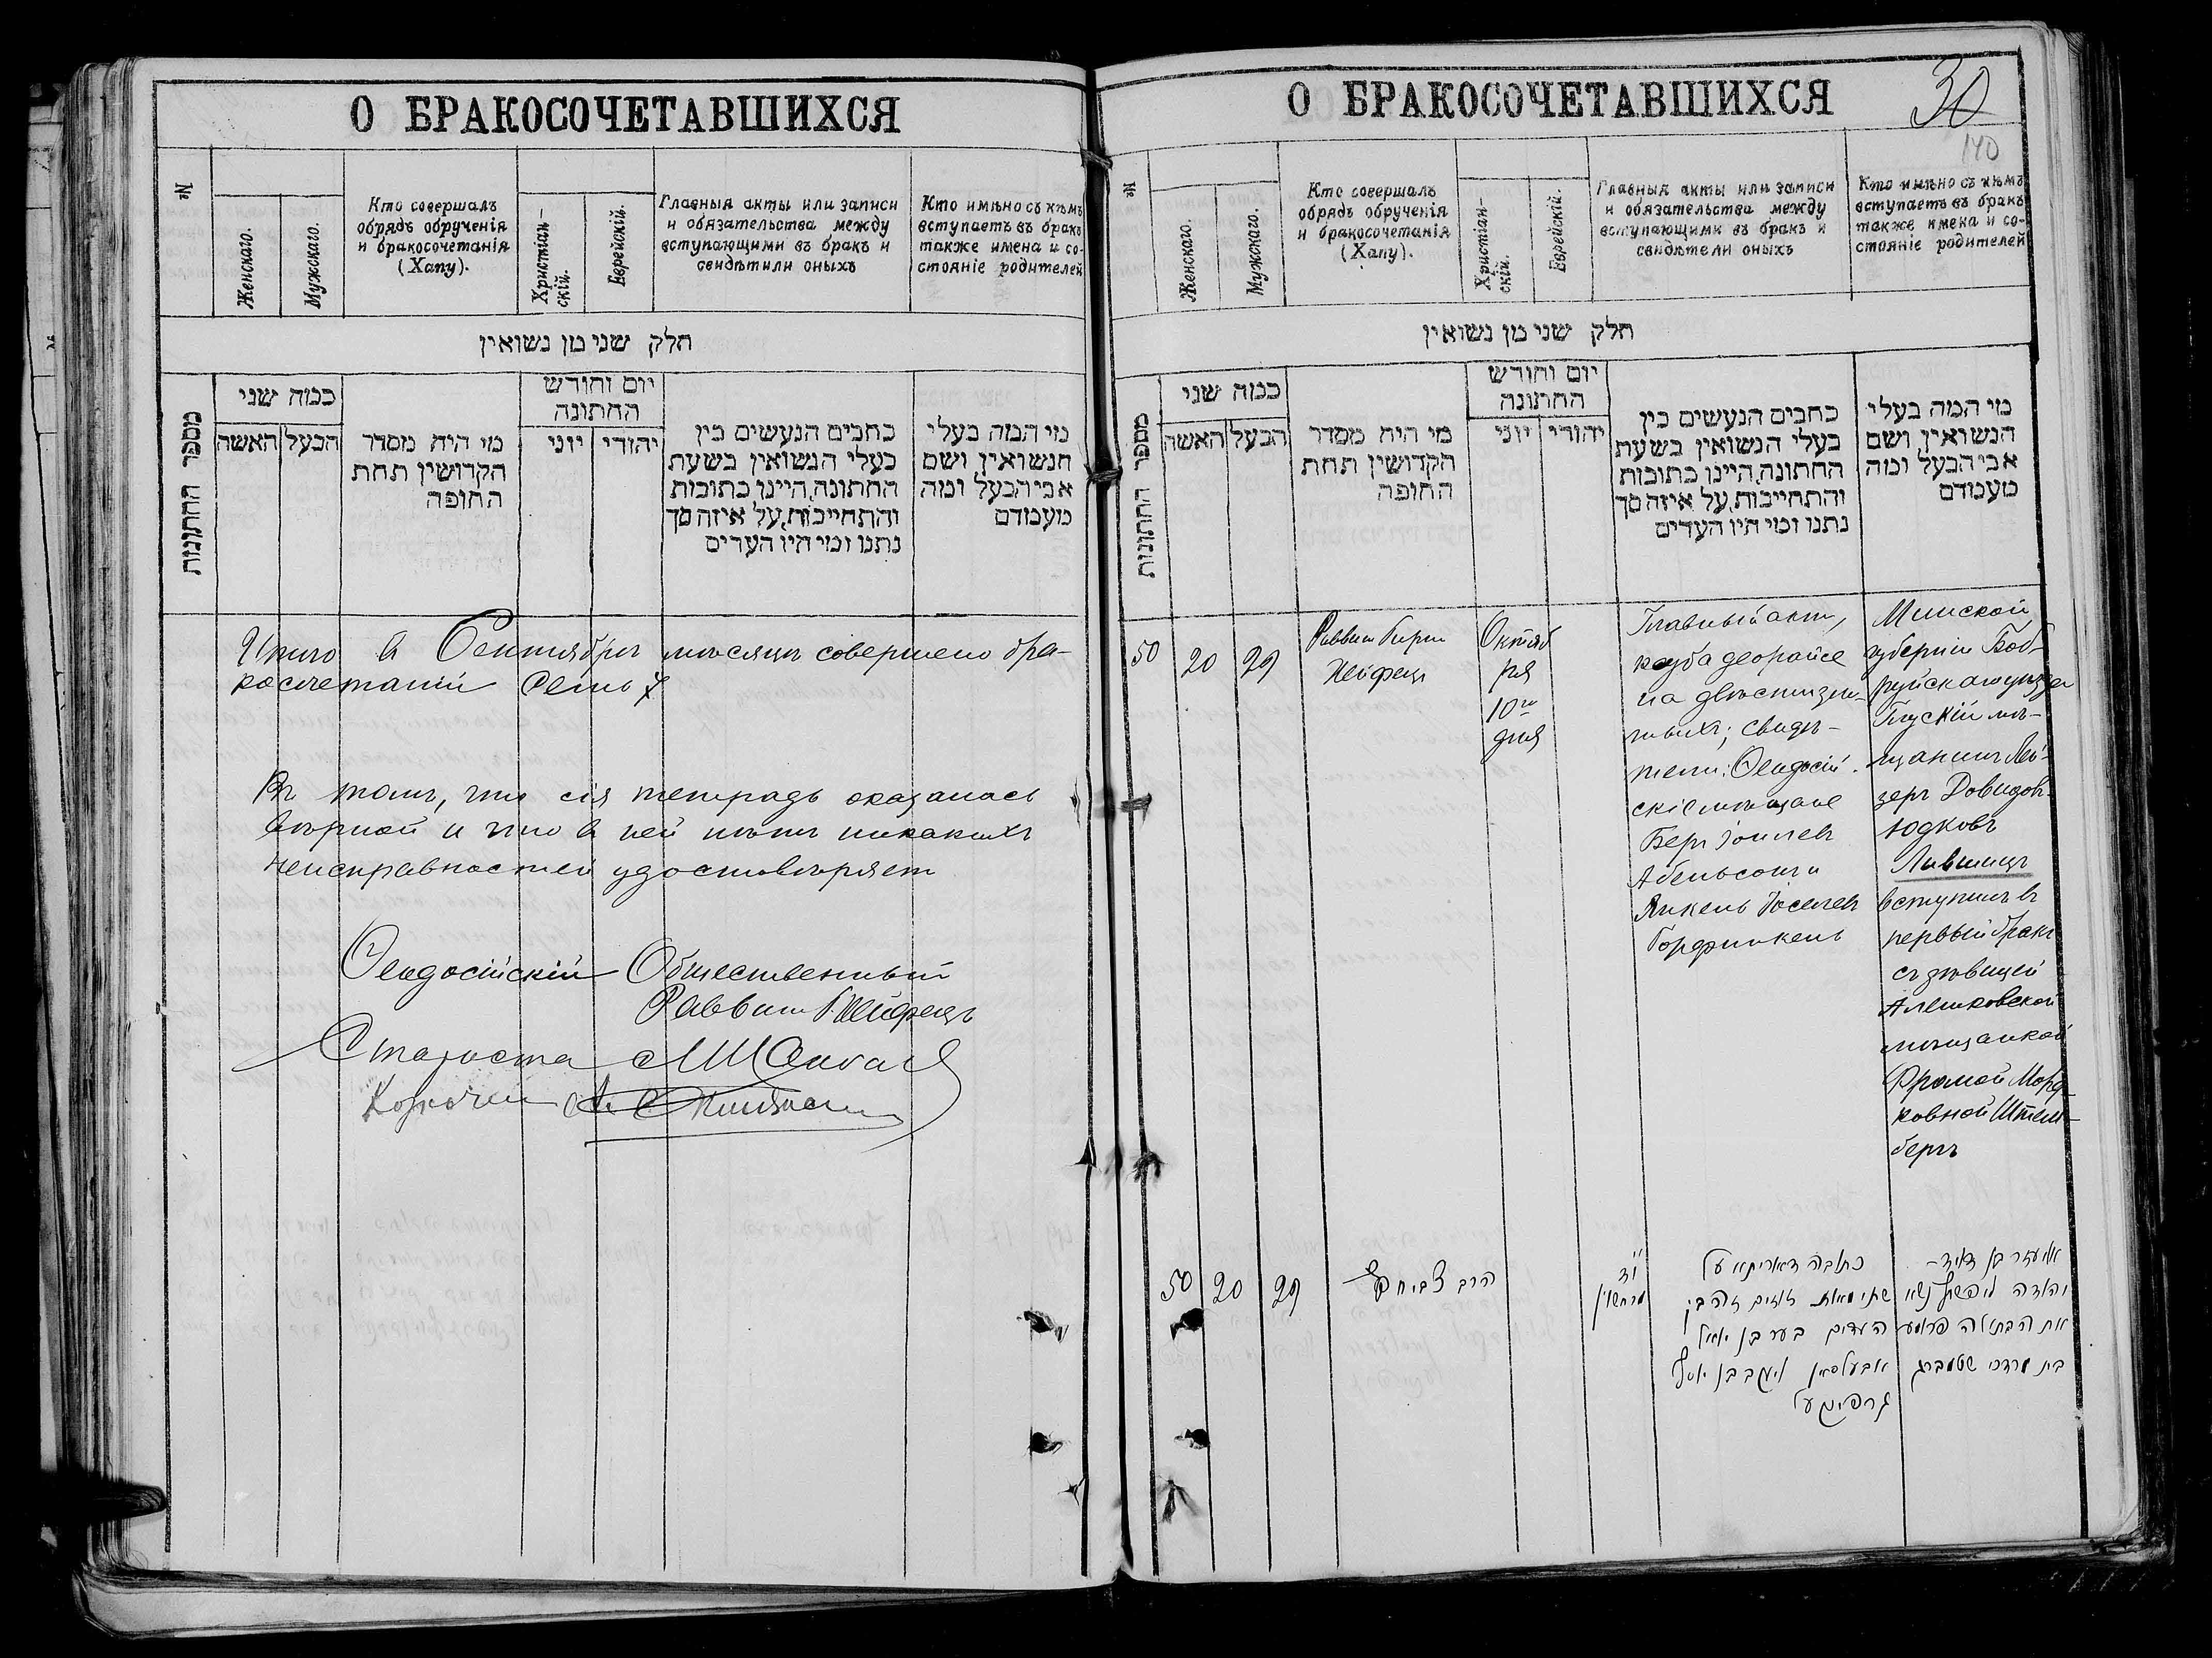 О БРАКОСОЧЕТАВШИХСЯ
№
Женскаго.
Мужскаго.
Кто совершалъ
обрядъ обрученія
и бракосочетанія
(Хапу).
Христіан-
скій.
Еврейскій.
Главныя акты или записи
и обязательства между
вступающими въ бракъ и
свидѣтили оныхъ
Кто имѣно съ кѣмъ
вступаетъ въ бракъ
также имена и со-
стояніе родителей
חלק שני מן נשואין
מספר החתונות
כמה שני
האשה
הבעל
מי היה מסדר
הקדושין תחת
החופה
יום וחודש
החתונה
יוני
יהודי
כתבים הנעשים בין
בעלי הנשואין בשעת
החתונה, היינו כתובות
והתחייבות, על איזה סך
נתנו ומי היו העדים
מי המה בעלי
הנשואין ושם
אבי הבעל ומה
מעמדם
Итого в Сентябрѣ мѣсяцѣ совершено бра-
косочетаній семь 7
Въ томъ, что сія тетрадь оказалась
вѣрной и что в ней нѣтъ никакихъ
неисправностей удостовѣряет
Ѳеодосійскій Общественный
Раввин Б. Хейфецъ
Староста
О БРАКОСОЧЕТАВШИХСЯ
30
140
№
Женскаго.
Мужскаго.
Кто совершалъ
обрядъ обрученія
и бракосочетанія
(Хапу).
Христіан-
скій.
Еврейскій.
Главныя акты или записи
и обязательства между
вступающими въ бракъ и
свидѣтели оныхъ
Кто имѣно съ кѣмъ
вступаетъ въ бракъ
также имена и со-
стояніе родителей
חלק שני מן נשואין
מספר החתונות
כמה שני
האשה
הבעל
מי היה מסדר
הקדושין תחת
החופה
יום וחודש
החתונה
יוני
יהודי
כתבים הנעשים בין
בעלי הנשואין בשעת
החתונה, היינו כתובות
והתחייבות, על איזה סך
נתנו ומי היו העדים
מי המה בעלי
הנשואין ושם
אבי הבעל ומה
מעמדם
50
20
29
Раввин Бирш
Хейфецъ
Октяб
ря
10го
дня
Главный акт,
ксуба деорайсе
на двѣсти зло-
тыхъ; свидѣ-
тели: Ѳеодосій-
скіе мѣщане
Беръ Іоилев
Абельсонъ и
Янкель Іоселев
Горфинкель
Минской
губерніи Боб-
руйскаго уѣзда
Глускій мѣ-
щанинъ Лей-
зеръ Довидов-
Юдковъ
Лившицъ
вступилъ въ
первый бракъ
съ дѣвицей
Алешковской
мѣщанкой
Фрамой Морд-
ковной Штем-
бергъ
50
20
29
הרב
יד
מרחשון
כתובה דאריתא על
שתי מאות זוזים זהבין
העדים בער בן יואל
אבעלסאן ויעקב בן יוסף
גרפינקעל
אליעזר בן דאוד-
יהודה ליפשיץ נשא
את הבתולה פראמע
בית מרדכי שטמברג